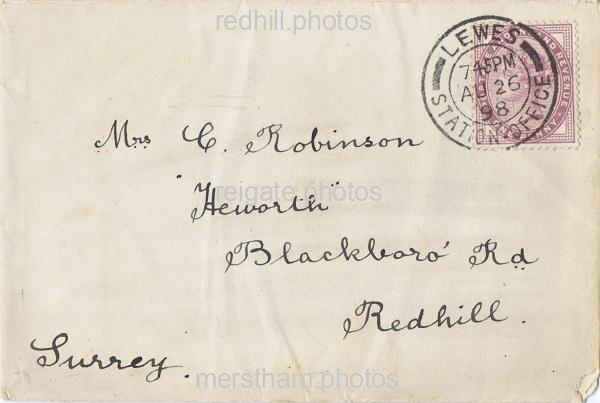 redhill.photos
LEWES
7 45 PM
AU 26
98
STATION OFFICE
AND REVENUE
Mrs C. Robinson
reigate.photos
"Heworth"
Blackboro' Rd
Redhill.
Surrey.
merstham.photos